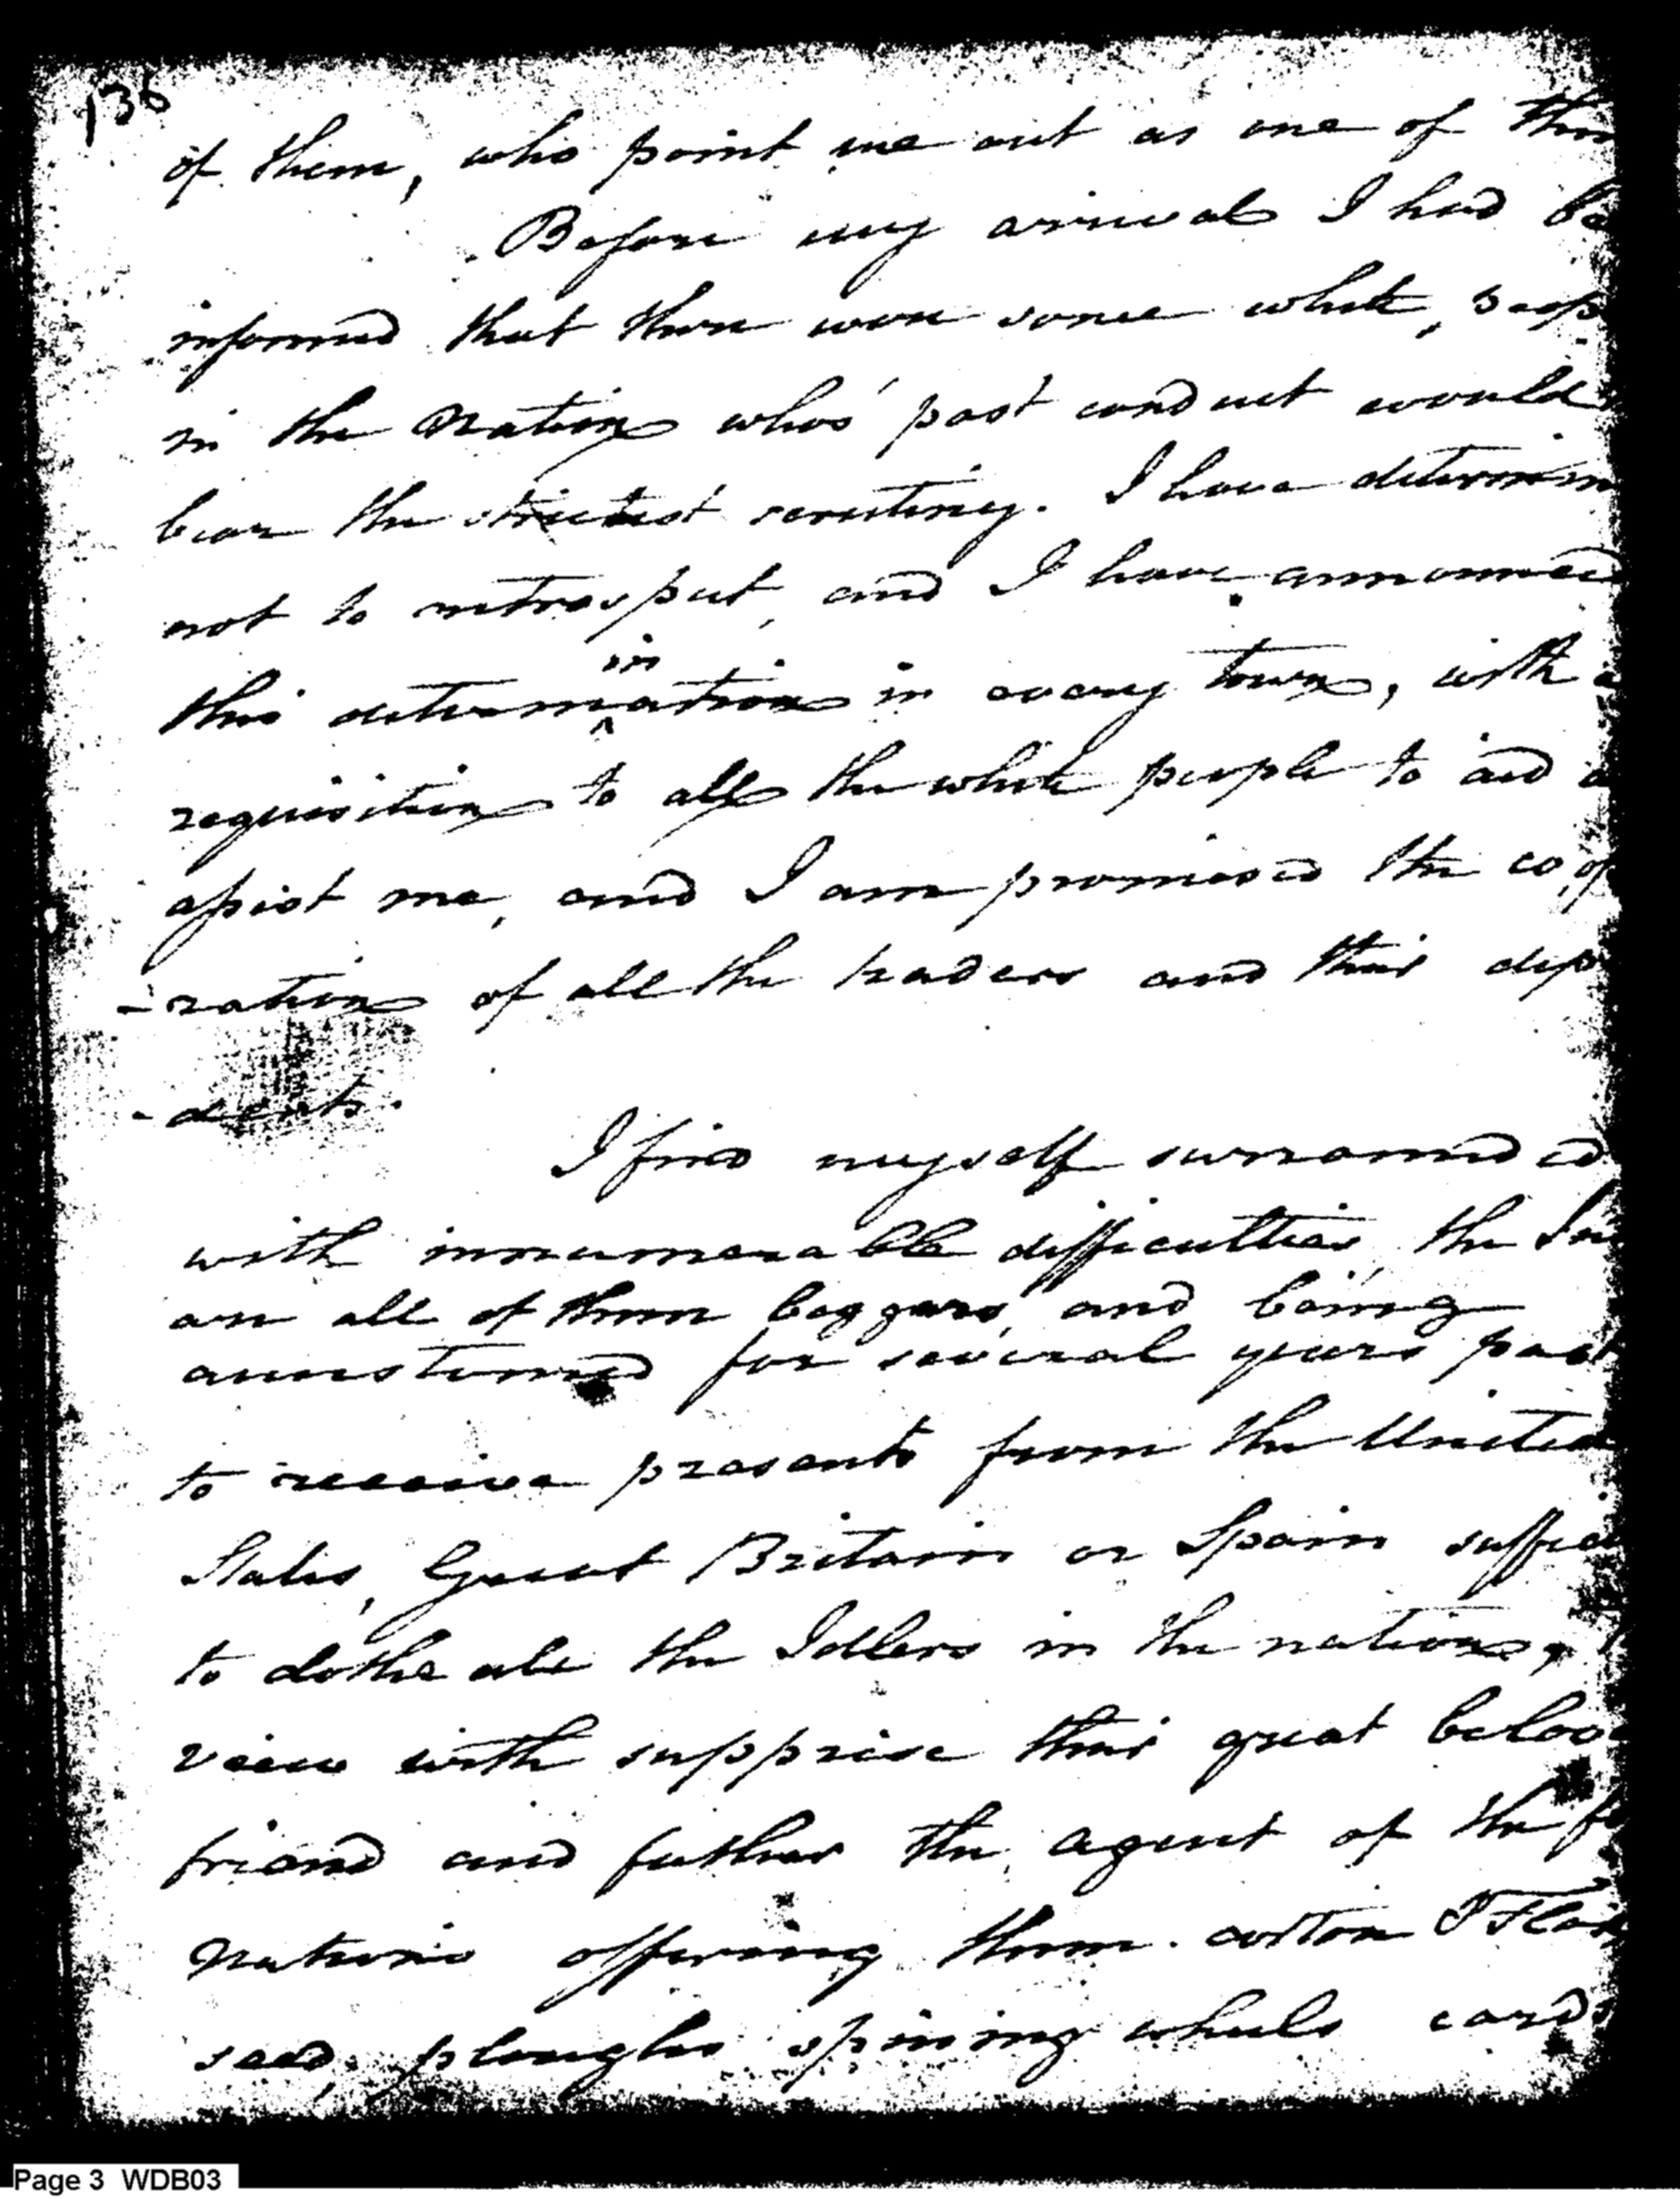 136
of them, who point me out as one of
Before my arrival I had
informed that there were some white,
in the Nation who's past conduct would
bear the strictest scrutiny. I have determin
not to retrospect, and I have announced
in
this determ^ation in every town, with a
requisition to all the white people to aid
assist me, and I am promised the co,op
-ration of all the traders and their dep
-dents.
I find myself surrounded
with innumerable difficulties, the In
are all of them beggars, and being
accustomed for several years past
to receive presents from the United
States, Great Britain or Spain suffici
to clothe all the Idlers in the nation,
view with supprise their great belov
friend and father the agent of the fo
Nations offering them cotton & Flax
seed, ploughs spining wheels cards
Page 3 WDB03